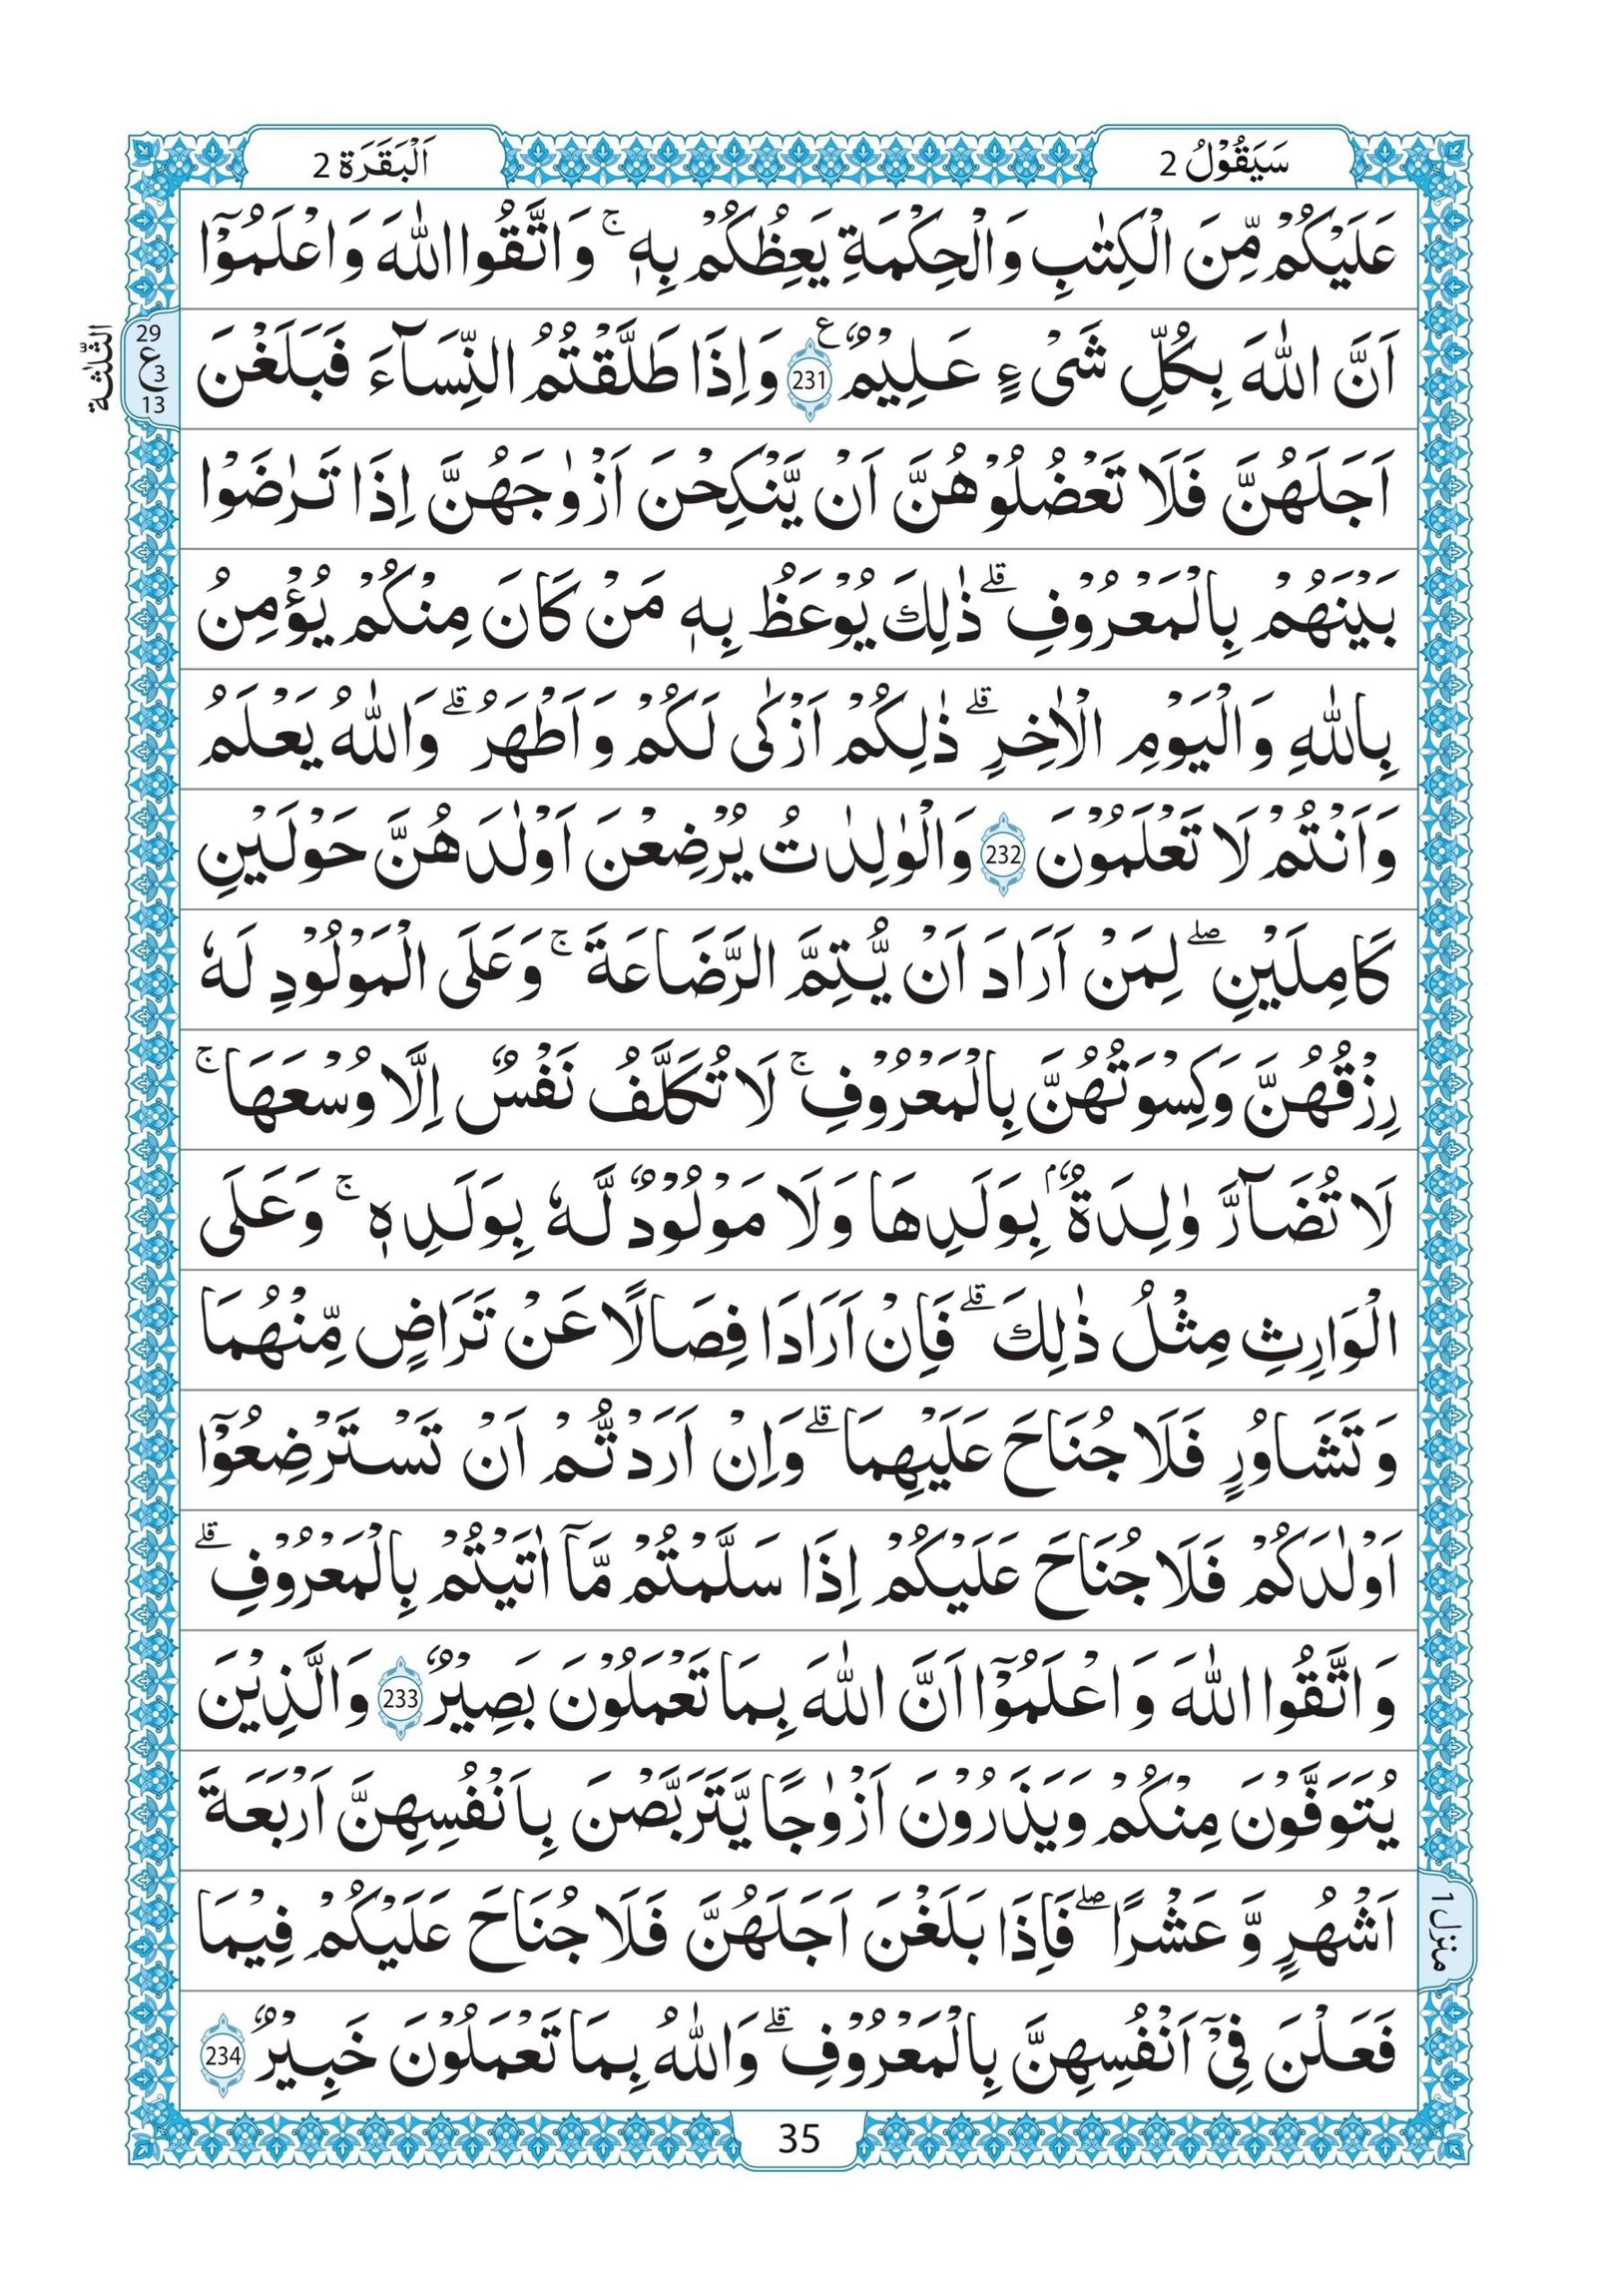 سَيَقُوْلُ 2
اَلْبَقَرَة 2
عَلَيْكُمْ مِّنَ الْكِتٰبِ وَالْحِكْمَةِ يَعِظُكُمْ بِهٖ ۚ وَاتَّقُوا اللّٰهَ وَاعْلَمُوْۤا
اَنَّ اللّٰهَ بِكُلِّ شَىْءٍ عَلِيْمٌ ۧ 231 وَاِذَا طَلَّقْتُمُ النِّسَآءَ فَبَلَغْنَ
29
ع 3
13
الثلٰثة
اَجَلَهُنَّ فَلَا تَعْضُلُوْهُنَّ اَنْ يَّنْكِحْنَ اَزْوٰجَهُنَّ اِذَا تَرٰضَوْا
بَيْنَهُمْ بِالْمَعْرُوْفِ ۗ ذٰلِكَ يُوْعَظُ بِهٖ مَنْ كَانَ مِنْكُمْ يُؤْمِنُ
بِاللّٰهِ وَالْيَوْمِ الْاٰخِرِ ۗ ذٰلِكُمْ اَزْكٰى لَكُمْ وَاَطْهَرُ ۗ وَاللّٰهُ يَعْلَمُ
وَاَنْتُمْ لَا تَعْلَمُوْنَ 232 وَالْوٰلِدٰتُ يُرْضِعْنَ اَوْلٰدَهُنَّ حَوْلَيْنِ
كَامِلَيْنِ ۖ لِمَنْ اَرَادَ اَنْ يُّتِمَّ الرَّضَاعَةَ ۚ وَعَلَى الْمَوْلُوْدِ لَهٗ
رِزْقُهُنَّ وَكِسْوَتُهُنَّ بِالْمَعْرُوْفِ ۚ لَا تُكَلَّفُ نَفْسٌ اِلَّا وُسْعَهَا ۚ
لَا تُضَآرَّ وٰلِدَةٌ ۢ بِوَلَدِهَا وَلَا مَوْلُوْدٌ لَّهٗ بِوَلَدِهٖ ۚ وَعَلَى
الْوَارِثِ مِثْلُ ذٰلِكَ ۗ فَاِنْ اَرَادَا فِصَالًا عَنْ تَرَاضٍ مِّنْهُمَا
وَتَشَاوُرٍ فَلَا جُنَاحَ عَلَيْهِمَا ۗ وَاِنْ اَرَدْتُّمْ اَنْ تَسْتَرْضِعُوْۤا
اَوْلٰدَكُمْ فَلَا جُنَاحَ عَلَيْكُمْ اِذَا سَلَّمْتُمْ مَّاۤ اٰتَيْتُمْ بِالْمَعْرُوْفِ ۗ
وَاتَّقُوا اللّٰهَ وَاعْلَمُوْۤا اَنَّ اللّٰهَ بِمَا تَعْمَلُوْنَ بَصِيْرٌ 233 وَالَّذِيْنَ
يُتَوَفَّوْنَ مِنْكُمْ وَيَذَرُوْنَ اَزْوٰجًا يَّتَرَبَّصْنَ بِاَنْفُسِهِنَّ اَرْبَعَةَ
اَشْهُرٍ وَّعَشْرًا ۖ فَاِذَا بَلَغْنَ اَجَلَهُنَّ فَلَا جُنَاحَ عَلَيْكُمْ فِيْمَا
منزل 1
فَعَلْنَ فِىْۤ اَنْفُسِهِنَّ بِالْمَعْرُوْفِ ۗ وَاللّٰهُ بِمَا تَعْمَلُوْنَ خَبِيْرٌ 234
35